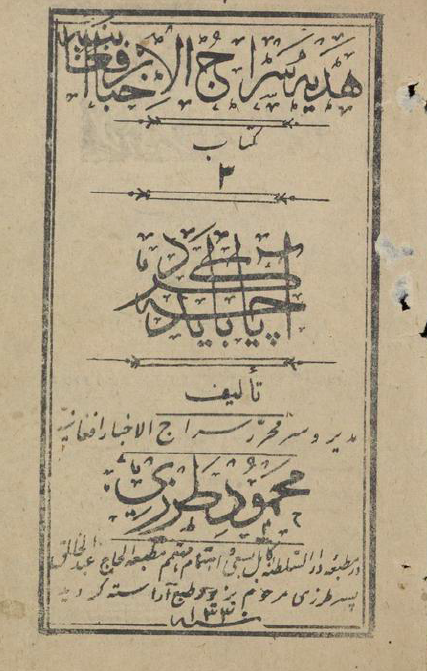 هدیهٔ سراج الاخبار افغانیه
کتاب
۳
آیا چه باید کرد
تألیف
مدیر و سرمحرر سراج الاخبار افغانیه
محمود طرزی
در مطبعهٔ دارالسلطنه کابل بسعی و اهتمام مهتمم مطبعه الحاج عبدالخالق
پسر طرزی مرحوم بزیور طبع آراسته گردید